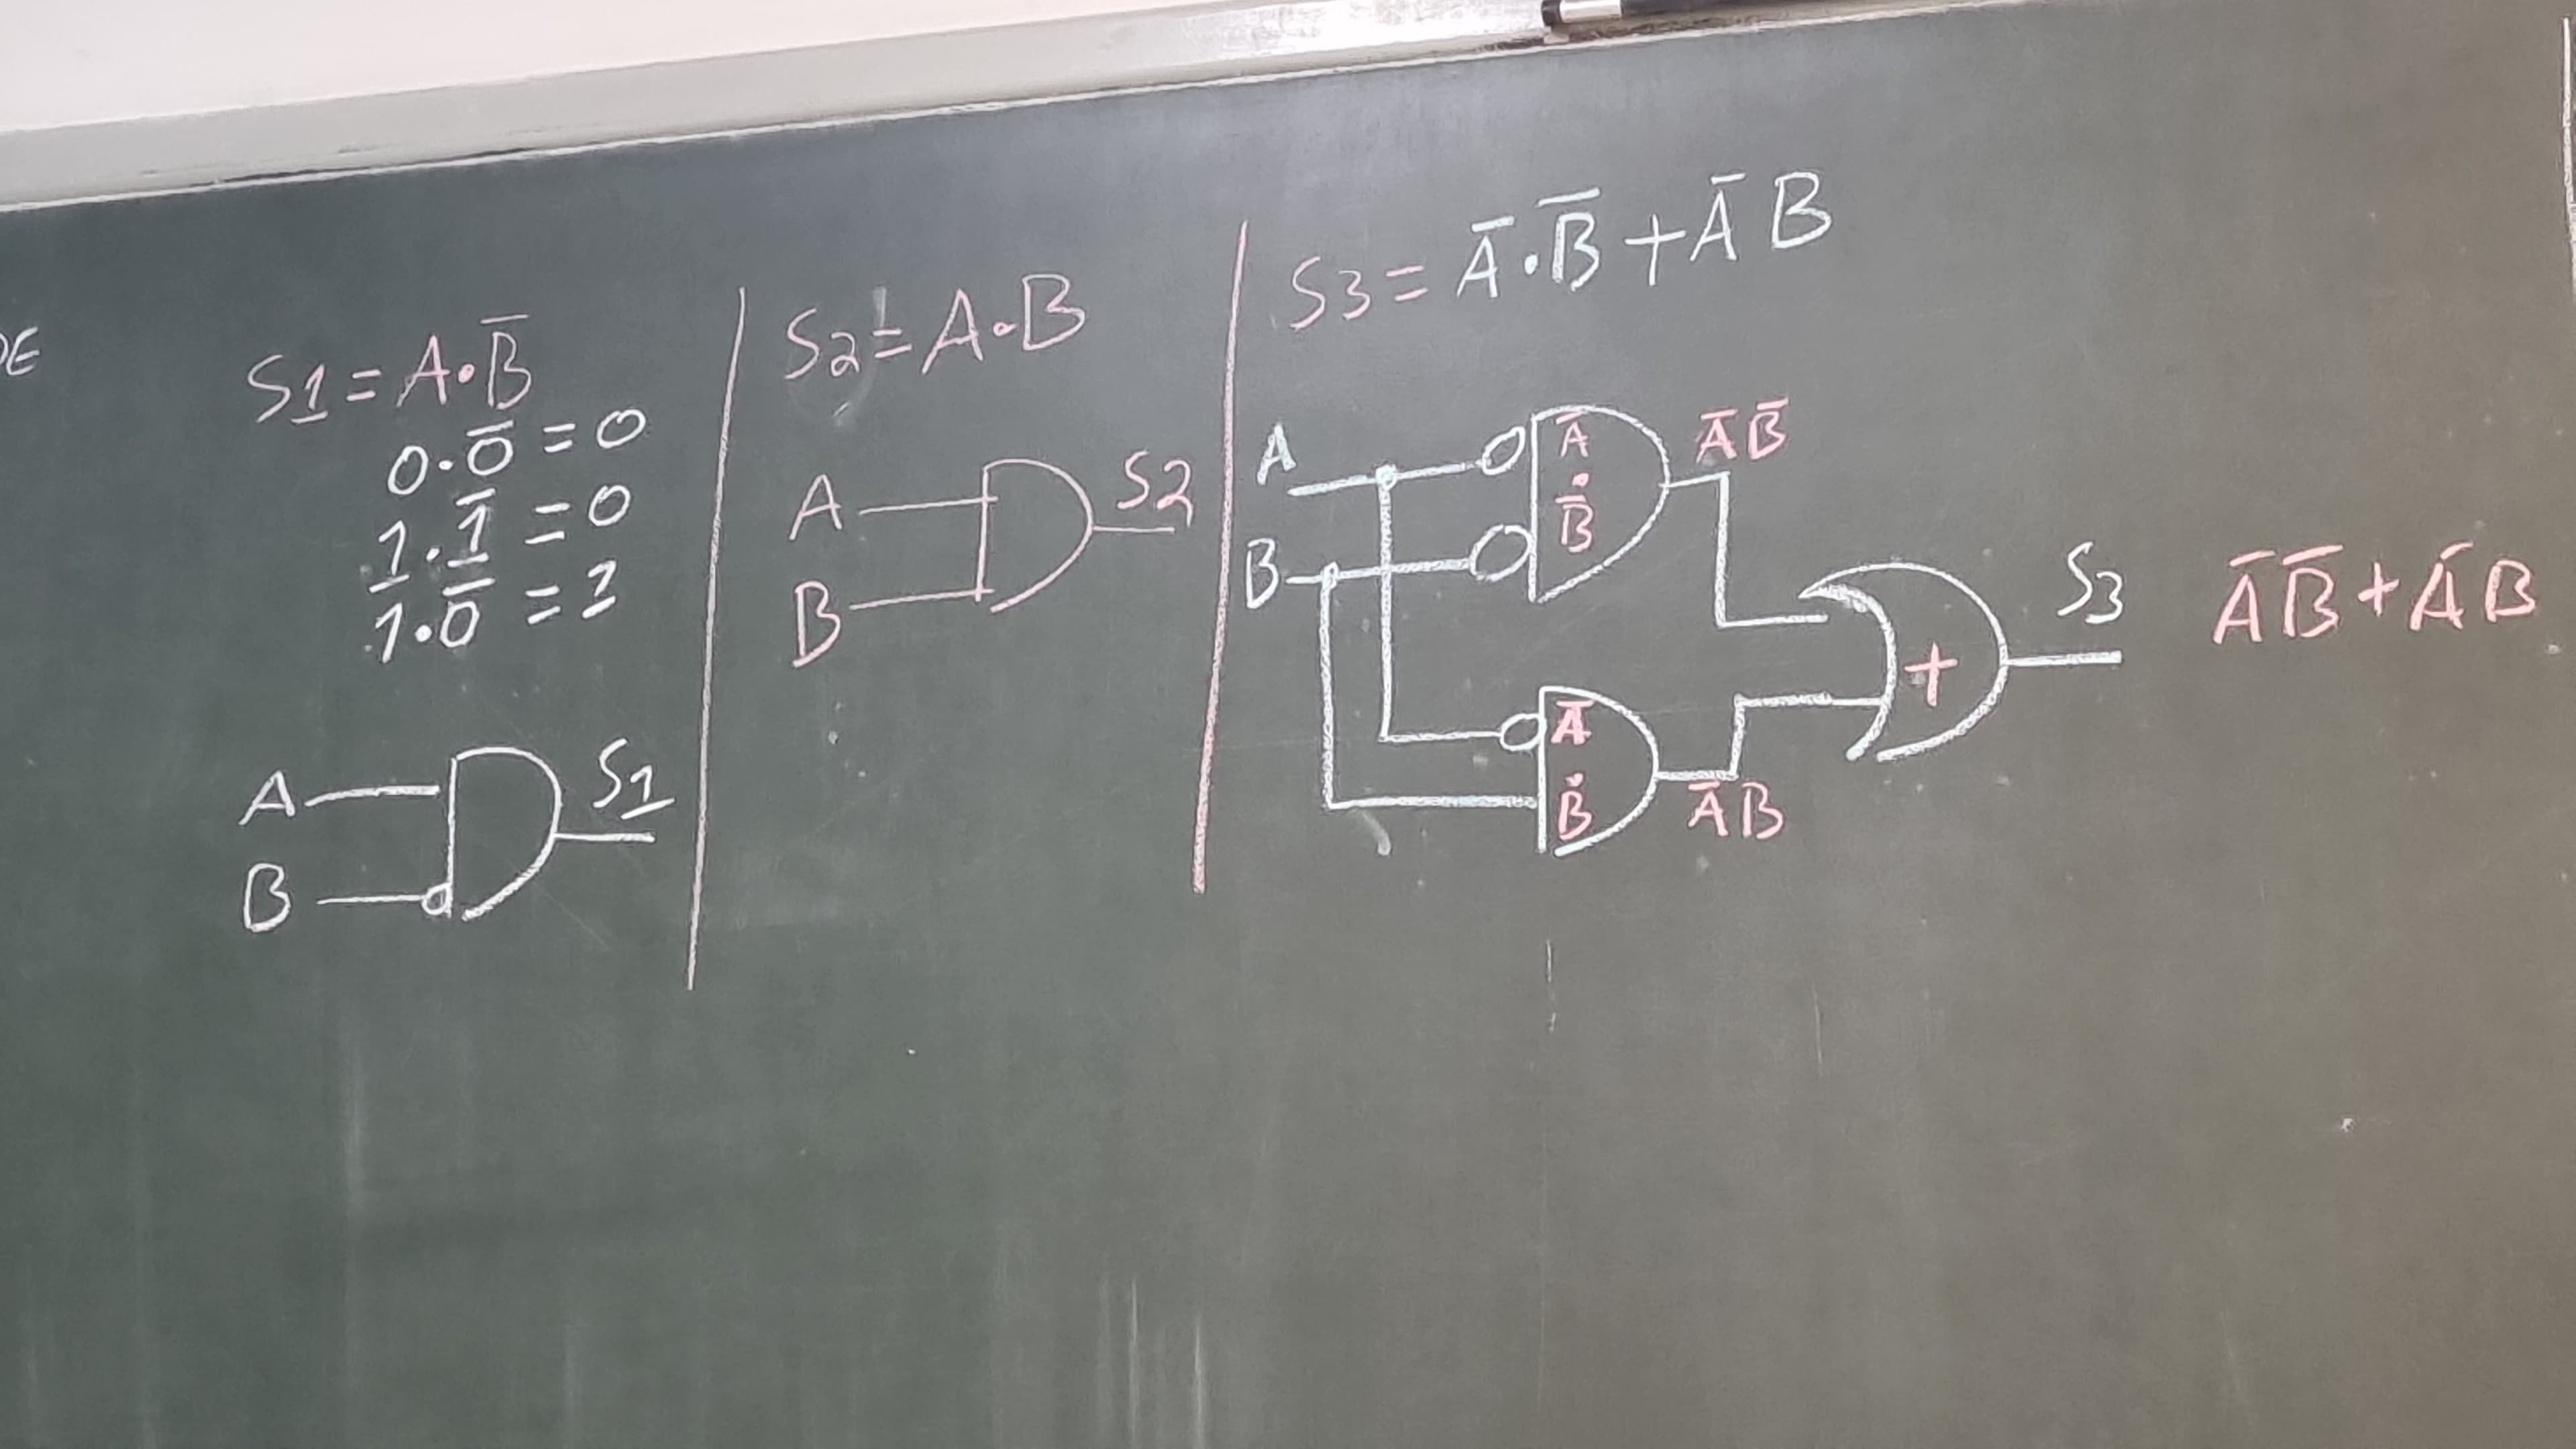 DE
S1 = A·B̅
0·0̅ = 0
1·1̅ = 0
1·0̅ = 1
A
B
S1
S2 = A·B
A
B
S2
S3 = A̅·B̅ + A̅ B
A
B
A̅
·
B̅
A̅ B̅
A̅
·
B
A̅ B
+
S3
A̅ B̅ + A̅ B